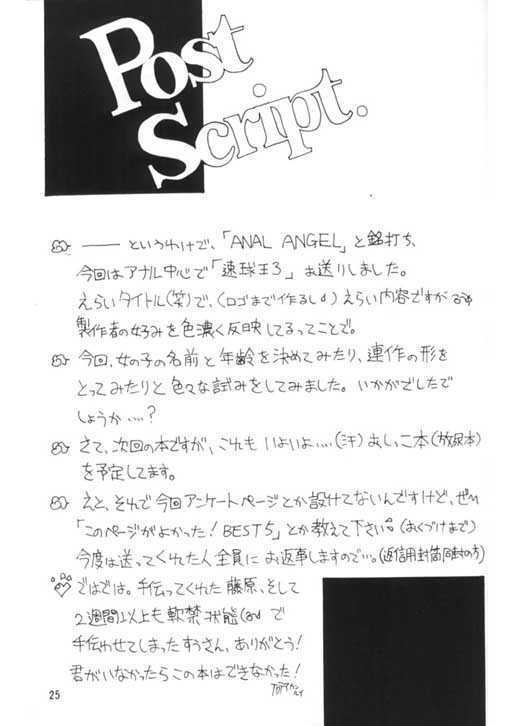 Post
Script.
── というわけで、「ANAL ANGEL」と銘打ち、
今回はアナル中心で「速球王3」お送りしました。
えらいタイトル(笑)で、(ロゴまで作るし)えらい内容ですが
製作者の好みを色濃く反映してるってことで。
今回、女の子の名前と年齢を決めてみたり、連作の形を
とってみたりと色々な試みをしてみました。いかがでしたで
しょうか….?
さて、次回の本ですが、これもいよいよ….(汗)おしっこ本(放尿本)
を予定してます。
えと、それで今回アンケートページとか設けてないんですけど、ぜひ
「このページがよかった!BEST5」とか教えて下さい。(おくづけまで)
今度は送ってくれた人全員にお返事しますので…。(返信用封筒同封の方)
ではでは。手伝ってくれた藤原、そして
2週間以上も軟禁状態で
手伝わせてしまったすうさん、ありがとう!
君がいなかったらこの本はできなかった!
25